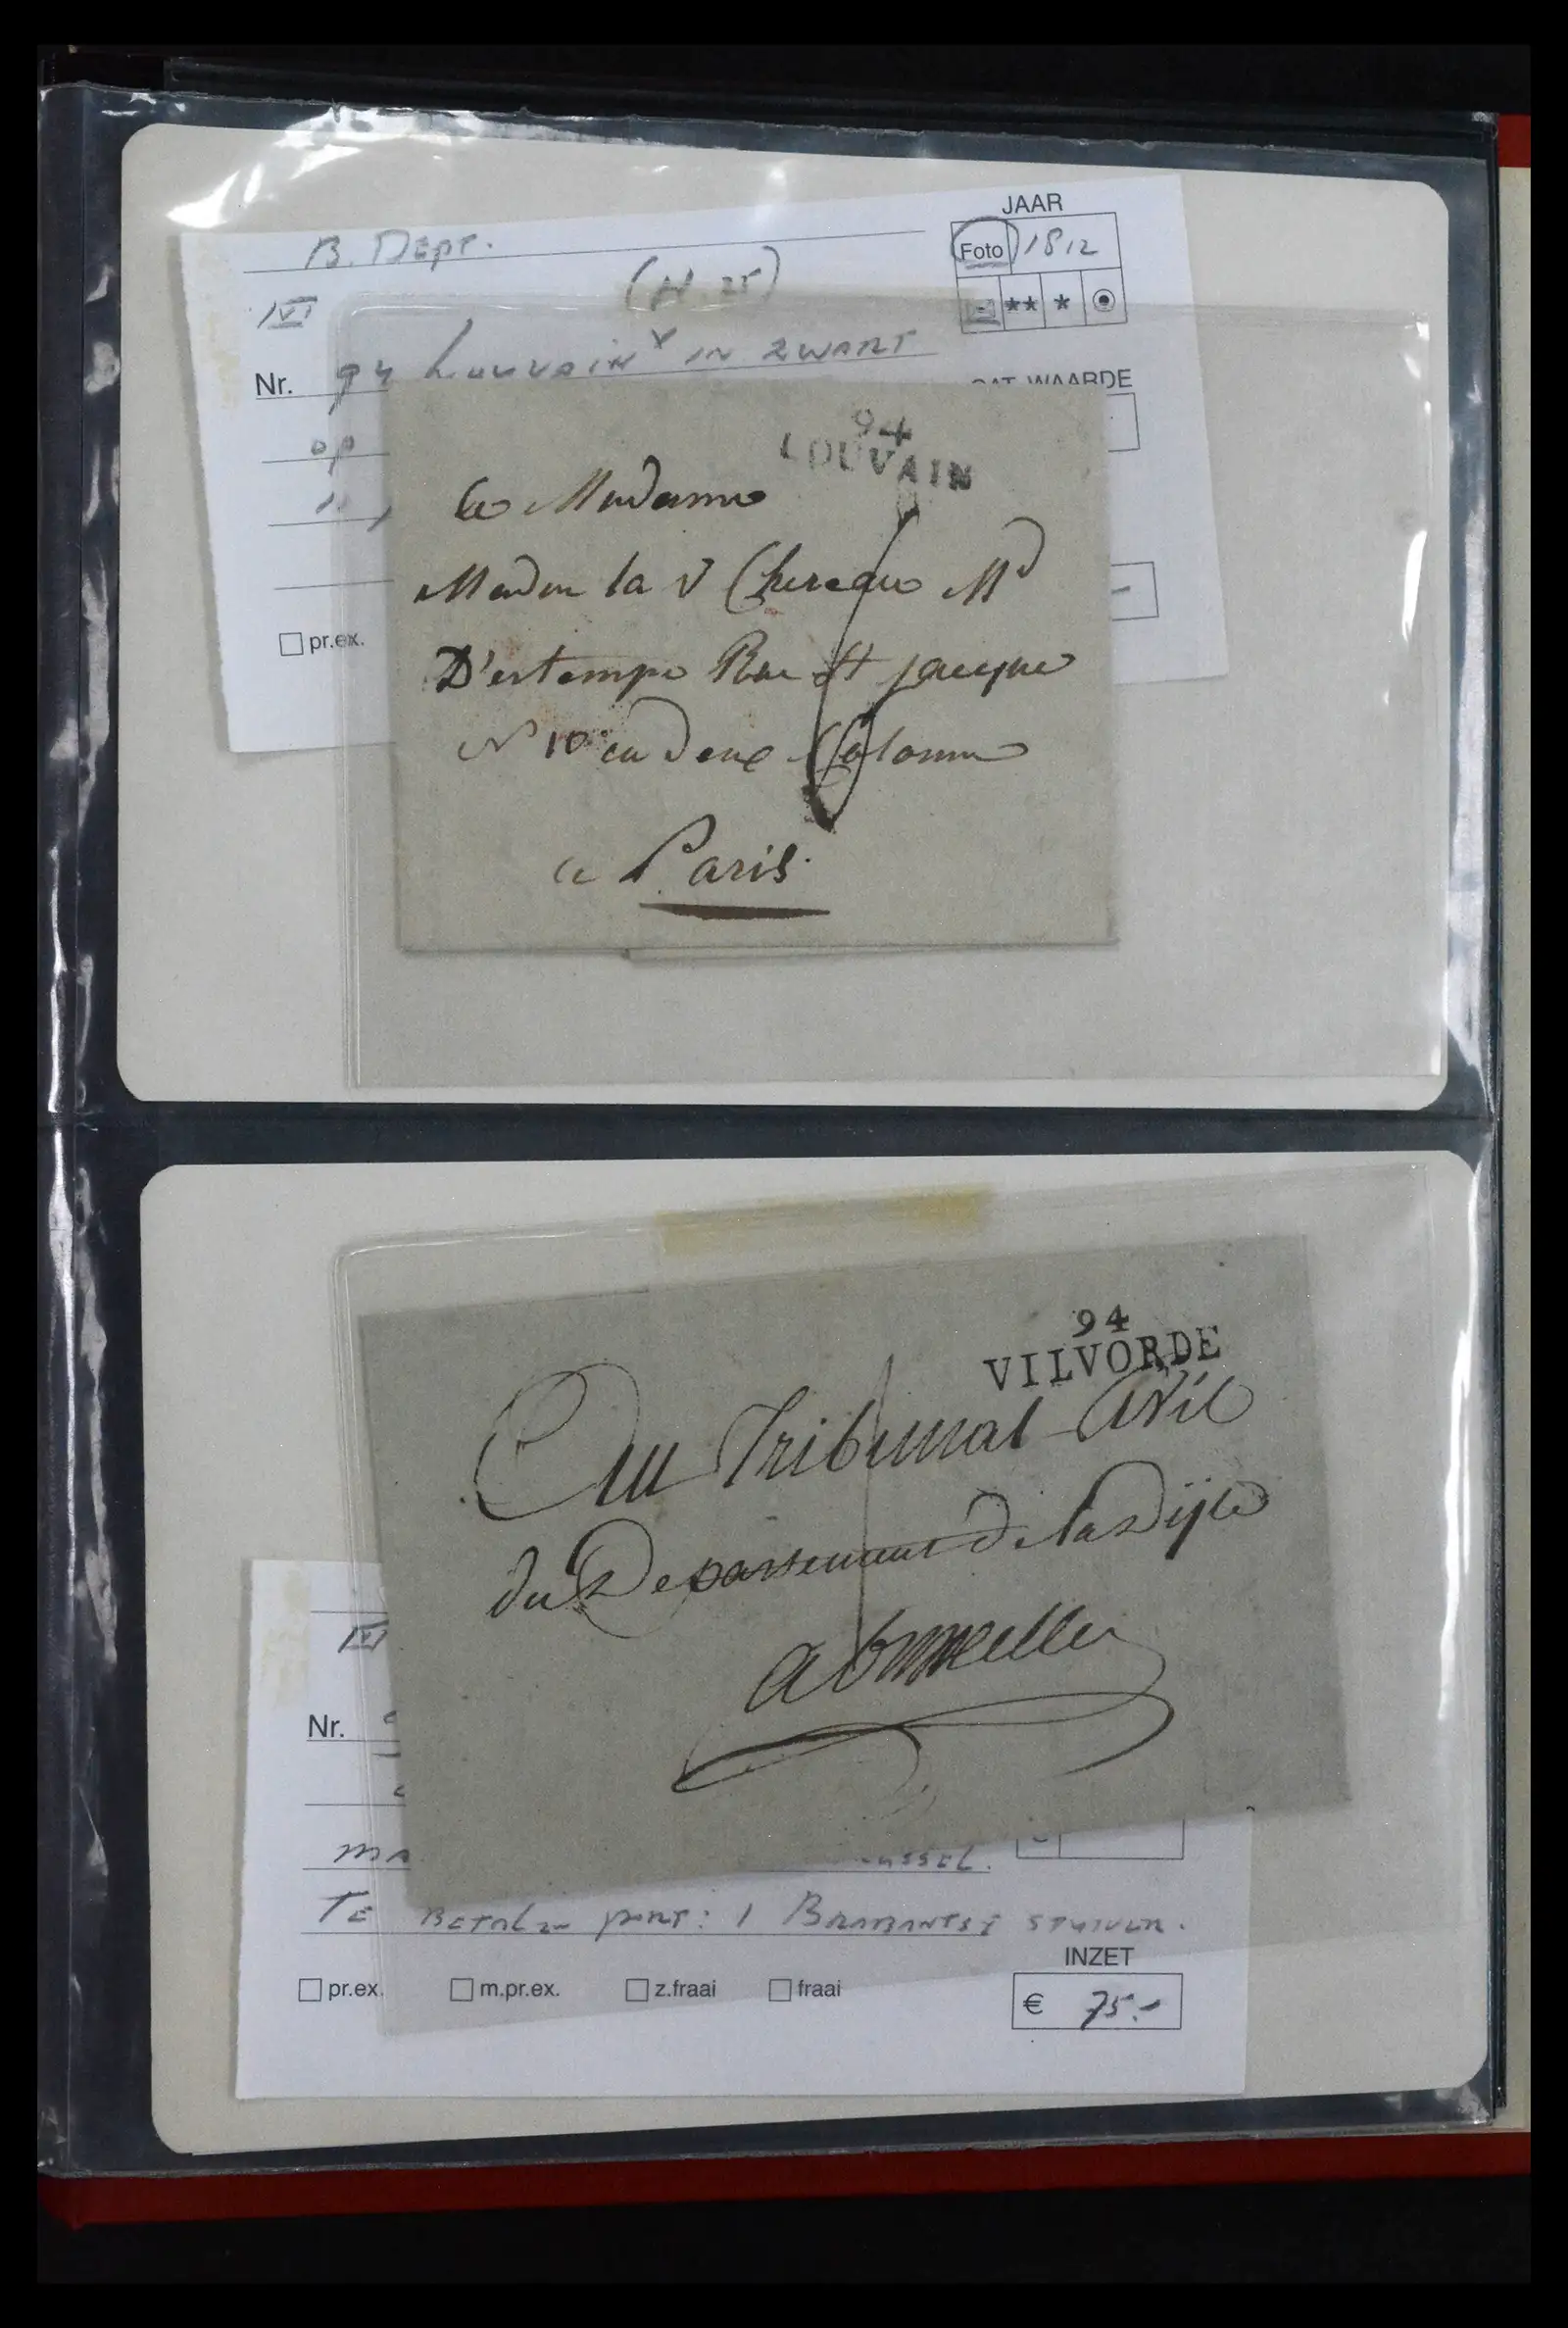 B. Dept.
JAAR
Foto 1812
IVI
(H. 25)
** *
Nr. 94 Louvain" in zwart
CAT. WAARDE
op
94
LOUVAIN
a Madame
Madm la V Chereau Md
D'estempe Rue St jacque
N 10 au deux Colonne
pr.ex.
a Paris.
94
VILVORDE
Au Tribunal Civil
du Departement de la Dijle
a bruxelles
IVI
Nr.
MA
USSEL.
TE BETALEN PORT: 1 BRABANTSE STUIVER.
INZET
pr.ex. m.pr.ex. z.fraai fraai
€ 75.-